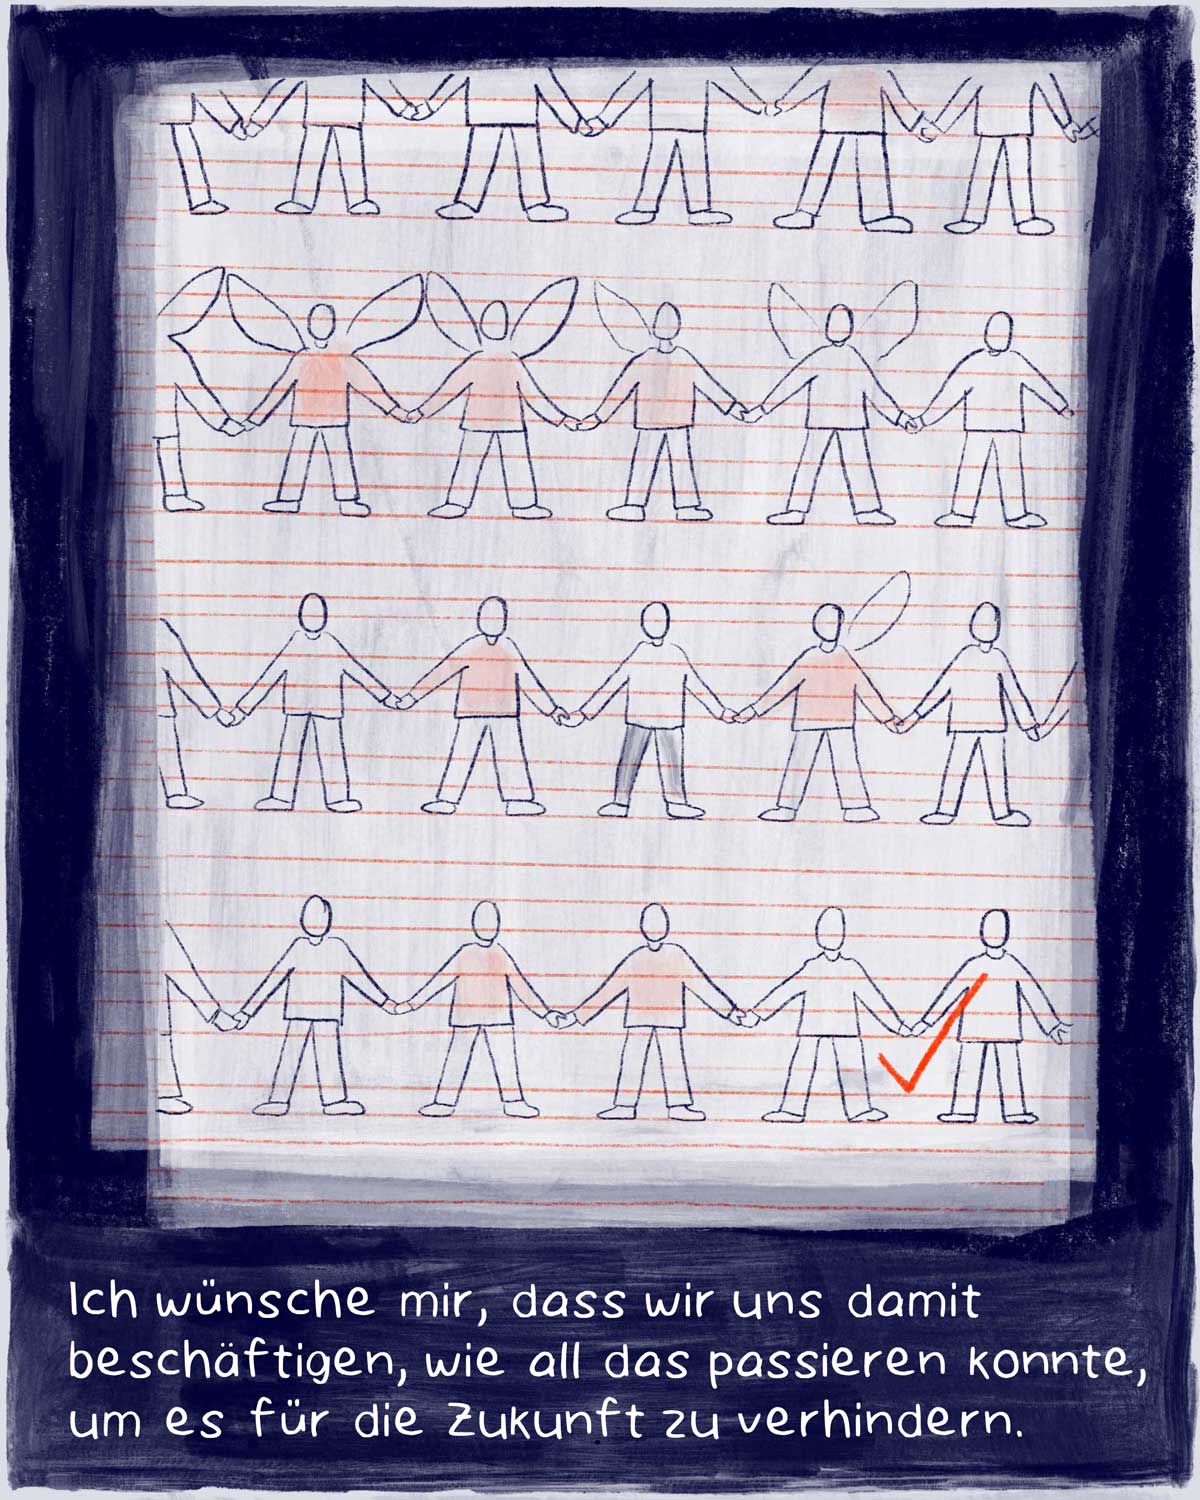 Ich wünsche mir, dass wir uns damit
beschäftigen, wie all das passieren konnte,
um es für die Zukunft zu verhindern.